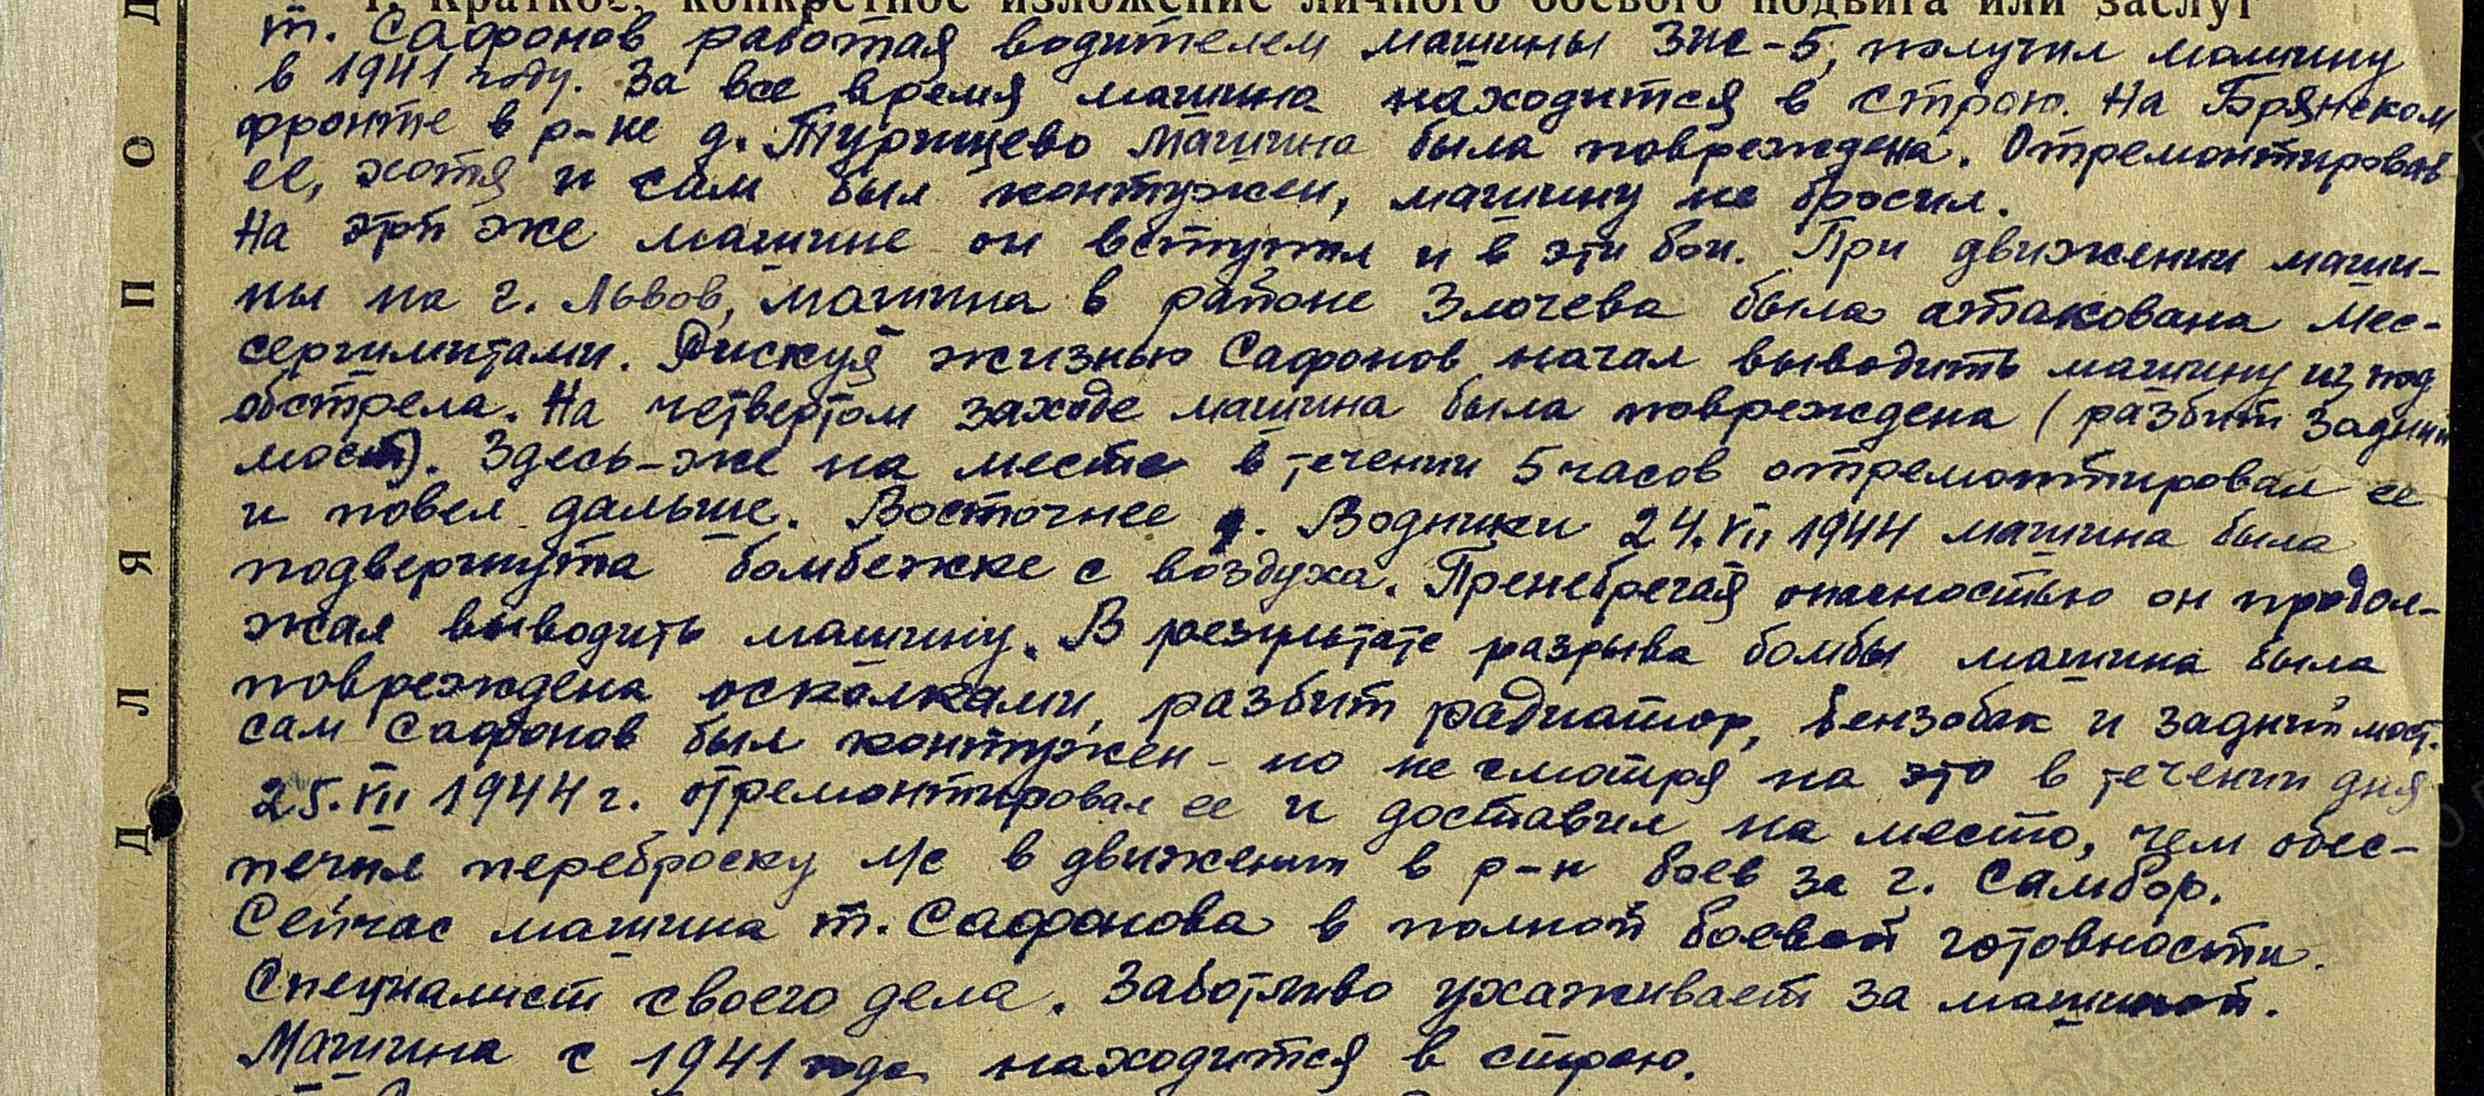 1. Краткое, конкретное изложение личного боевого подвига или заслуг
т. Сафонов работая водителем машины Зис-5, получил машину
в 1941 году. За все время машина находится в строю. На Брянском
фронте в р-не д. Турищево машина была повреждена. Отремонтировав
ее, хотя и сам был контужен, машину не бросил.
На этой же машине он вступил и в эти бои. При движении маши-
ны на г. Львов, машина в районе Злочева была атакована Мес-
сершмитами. Рискуя жизнью Сафонов начал выводить машину из под
обстрела. На четвертом заходе машина была повреждена (разбит задний
мост). Здесь-же на месте в течении 5 часов отремонтировал ее
и повел дальше. Восточнее д. Водники 24.VII 1944 машина была
подвергнута бомбежке с воздуха. Пренебрегая опасностью он продол-
жал выводить машину. В результате разрыва бомбы машина была
повреждена осколками, разбит радиатор, бензобак и задний мост.
сам Сафонов был контужен - но не смотря на это в течении дня
25.VII 1944 г. отремонтировал ее и доставил на место, чем обес-
печил переброску м/с в движении в р-н боев за г. Самбор.
Сейчас машина т. Сафонова в полной боевой готовности.
Специалист своего дела. Заботливо ухаживает за машиной.
Машина с 1941 года находится в строю.
Д Л Я П О Д